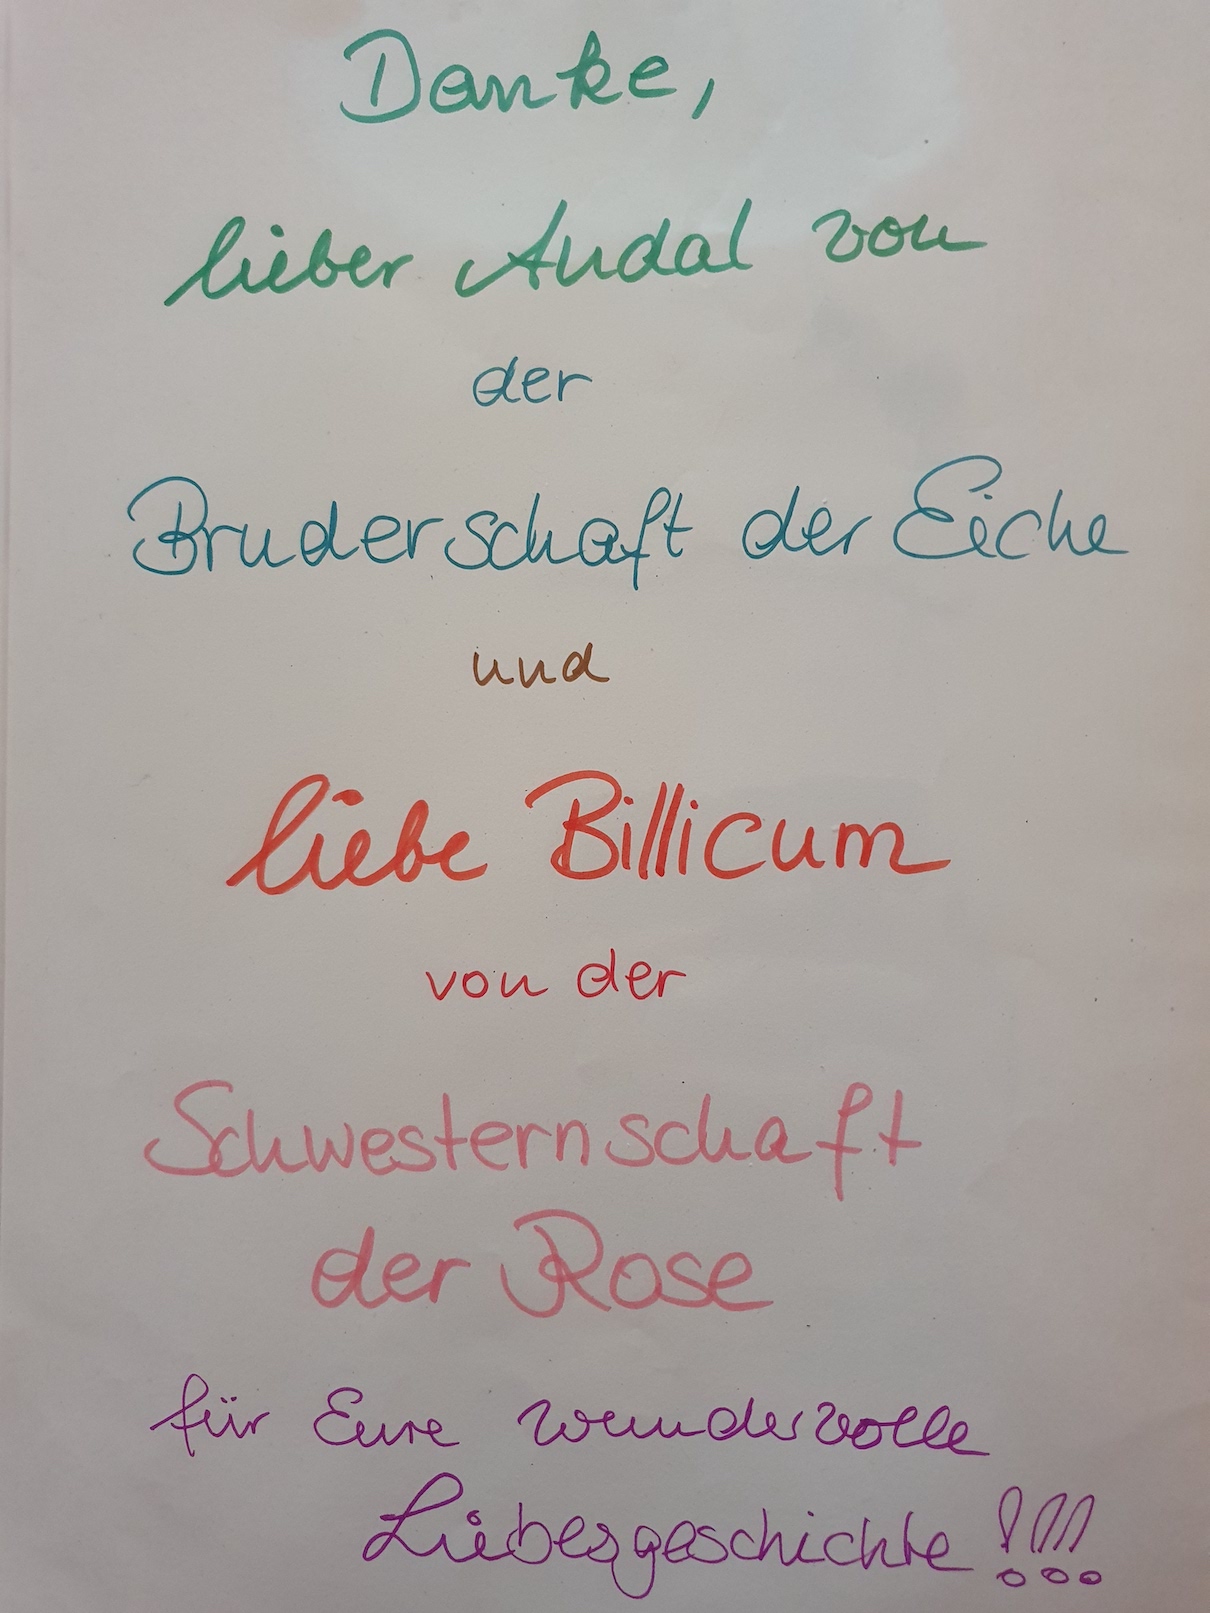 Danke,
lieber Andal von
der
Bruderschaft der Eiche
und
liebe Billicum
von der
Schwesternschaft
der Rose
für Eure wundervolle
Liebesgeschichte !!!!